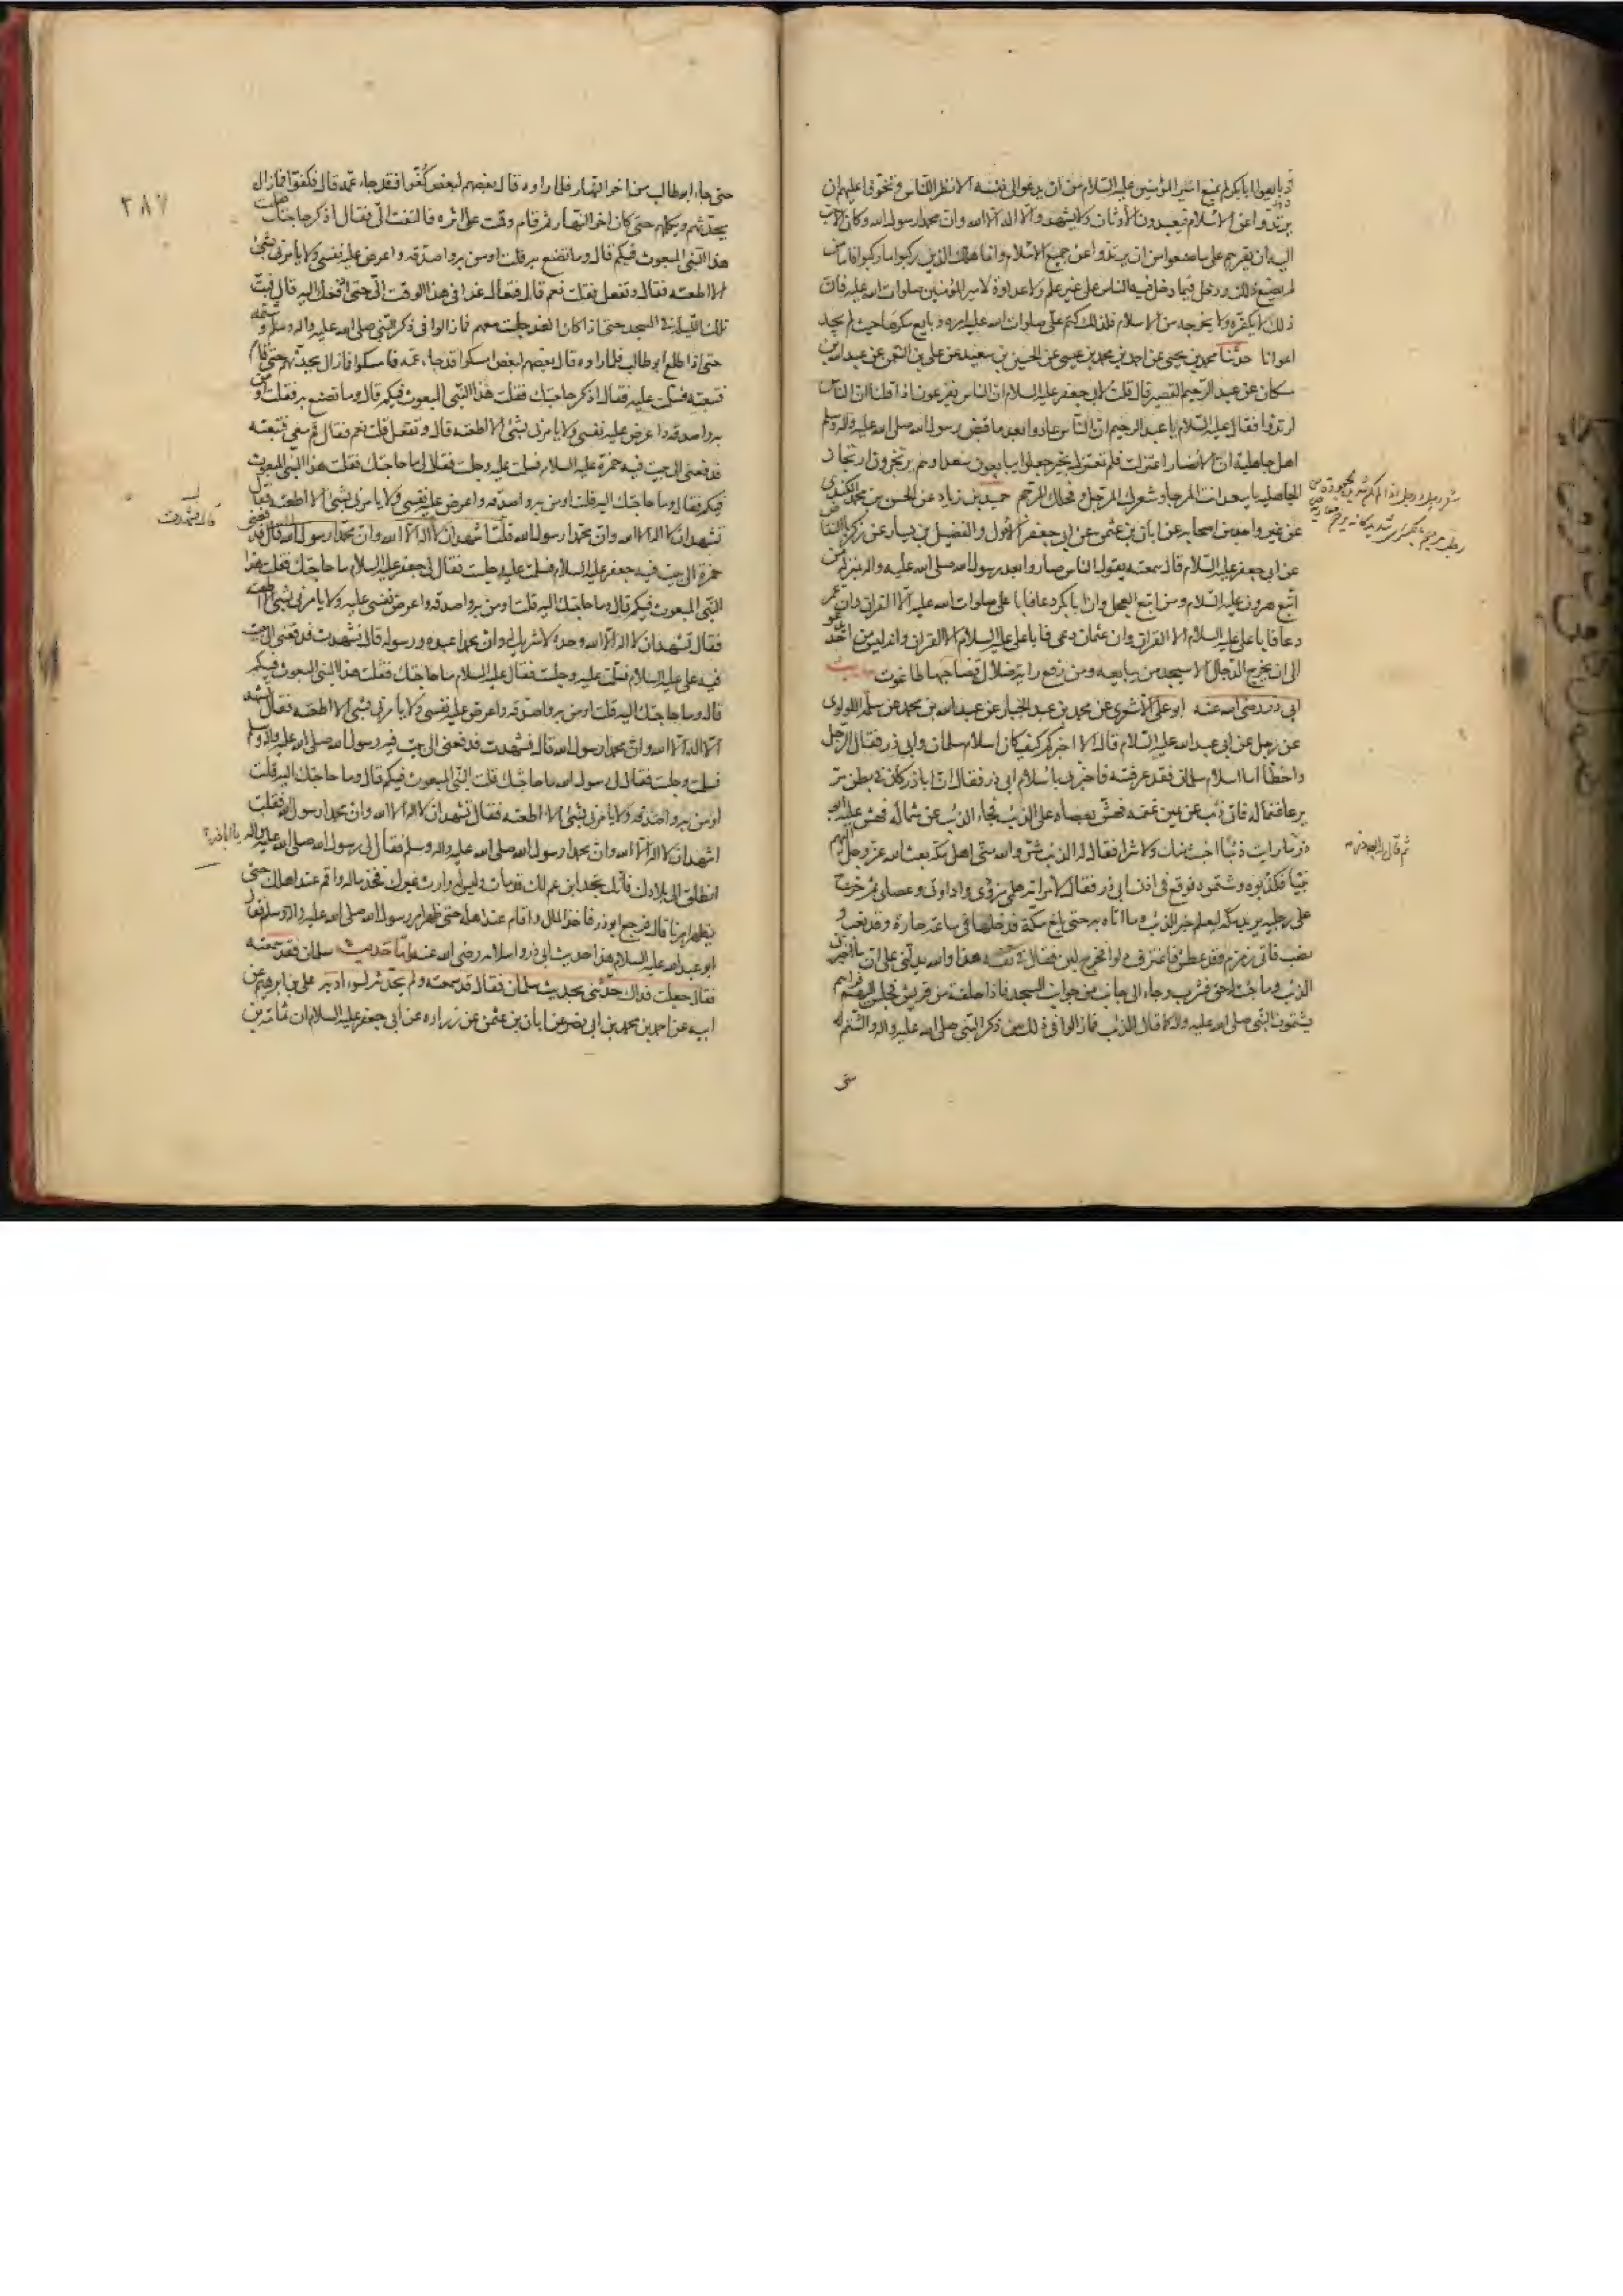 اذ بايعوا ابا بكر لم يمنع امير المؤمنين عليه السلام من ان يدعو الى نفسه الا نظر للناس وتخوفا عليهم ان
يرتدوا عن الاسلام فيعبدون الاوثان ولا يشهدوا ان لا اله الا الله وان محمدا رسول الله وكان الاحب
اليه ان يقرهم على ما صنعوا من ان يرتدوا عن جميع الاسلام وانما هلك الذين ركبوا ما ركبوا فاما من
لم يصنع ذلك ودخل فيما دخل فيه الناس على غير علم ولا عداوة لامير المؤمنين صلوات الله عليه فان
ذلك لا يكفره ولا يخرجه من الاسلام فلذلك كتم على صلوات الله عليه امره وبايع مكرها حيث لم يجد
اعوانا حدثنا محمد بن يحيى عن احمد بن محمد بن عيسى عن الحسين بن سعيد عن على بن النعمن عن عبد الله بن
مسكان عن عبد الرحيم القصير قال قلت لابى جعفر عليه السلام ان الناس يفزعون اذا قلنا ان الناس
ارتدوا فقال عليه السلام يا عبد الرحيم ان الناس عادوا بعد ما قبض رسول الله صلى الله عليه واله وسلم
اهل جاهلية ان الانصار اعتزلت فلم تعتزل بخير جعلوا يبايعون سعدا وهم يرتجزون ارتجاز
الجاهلية يا سعد انت المرجا وشعرك المرجل وفحلك المرجم حميد بن زياد عن الحسن بن محمد الكندى
عن غير واحد من اصحابه عن ابان بن عثمن عن ابى جعفر الاحول والفضيل بن يسار عن زكريا النقاض
عن ابى جعفر عليه السلام قال سمعته يقول الناس صاروا بعد رسول الله صلى الله عليه واله بمنزلة من
اتبع هرون عليه السلام ومن اتبع العجل وان ابا بكر دعا فابا على صلوات الله عليه الا القران وان عمر
دعا فابا على عليه السلام الا القران وان عثمان دعى فابا على عليه السلام الا القران وانه ليس من احد يدعو
الى ان يخرج الدجال الا سيجد من يبايعه ومن رفع راية ضلال فصاحبها طاغوت حديث
ابى ذر رضى الله عنه ابو على الاشعرى عن محمد بن عبد الجبار عن عبد الله بن محمد عن سلمة اللؤلوى
عن رجل عن ابى عبد الله عليه السلام قال الا اخبركم كيف كان اسلام سلمان وابى ذر فقال الرجل
واخطأ اما اسلام سلمان فقد عرفته فاخبرنى باسلام ابى ذر فقال ان ابا ذر كان فى بطن مر
يرعا غنما له فاتى ذئب عن يمين غنمه فهش بعصاه على الذئب فجاء الذئب عن شماله فهش عليه ابو
ذر ما رايت ذئبا اخبث منك ولا شرا فقال له الذئب شر والله منى اهل مكة بعث الله عز وجل اليهم
نبيا فكذبوه وشتموه فوقع فى اذن ابى ذر فقال لامراته هلمى مزودى واداوتى وعصاى ثم خرج
على رجليه يريد مكة ليعلم خبر الذئب وما اتاه به حتى بلغ مكة فدخلها فى ساعة حارة وقد تعب و
نصب فاتى زمزم وقد عطش فاغترف دلوا فخرج لبن فقال فى نفسه هذا والله يدلنى على ان ما خبرنى
الذئب وما جئت له حق فشرب وجاء الى جانب من جوانب المسجد فاذا حلقة من قريش فجلس اليهم فراهم
يشتمون النبى صلى الله عليه واله كما قال الذئب فما زالوا فى ذلك من ذكر النبى صلى الله عليه واله والشتم له
حتى
ثم قال له ابو ذر
٣٨٧
حتى جاء ابو طالب من اخر النهار فلما راوه قال بعضهم لبعض كفوا فقد جاء عمه قال فكفوا فما زال
يحدثهم ويكلمهم حتى كان اخر النهار ثم قام وقمت على اثره فالتفت الى فقال اذكر حاجتك فقلت
هذا النبى المبعوث فيكم قال وما تصنع به قلت اومن به واصدقه واعرض عليه نفسى ولا يامرنى بشئ
الا اطعته فقال وتفعل فقلت نعم قال فقال غدا فى هذا الوقت الى حتى ادفعك اليه قال فبت
تلك الليلة فى المسجد حتى اذا كان الغد جلست معهم فما زالوا فى ذكر النبى صلى الله عليه واله وسلم وشتمه
حتى اذا طلع ابو طالب فلما راوه قال بعضهم لبعض امسكوا قد جاء عمه فامسكوا فما زال يحدثهم حتى قام
فتبعته فسلمت عليه فقال اذكر حاجتك فقلت هذا النبى المبعوث فيكم قال وما تصنع به فقلت اومن
به واصدقه واعرض عليه نفسى ولا يامرنى بشئ الا اطعته قال وتفعل قلت نعم فقال قم معى فتبعته
فدفعنى الى بيت فيه حمزة عليه السلام فسلمت عليه وجلست فقال لى ما حاجتك فقلت هذا النبى المبعوث
فيكم فقال وما حاجتك اليه قلت اومن به واصدقه واعرض عليه نفسى ولا يامرنى بشئ الا اطعته فقال
تشهد ان لا اله الا الله وان محمدا رسول الله قلت اشهد ان لا اله الا الله وان محمدا رسول الله قال فدفعنى
حمزة الى بيت فيه جعفر عليه السلام فسلمت عليه وجلست فقال لى جعفر عليه السلام ما حاجتك فقلت هذا
النبى المبعوث فيكم قال وما حاجتك اليه قلت اومن به واصدقه واعرض نفسى عليه ولا يامرنى بشئ الا اطعته
فقال تشهد ان لا اله الا الله وحده لا شريك له وان محمدا عبده ورسوله قال فشهدت فدفعنى الى بيت
فيه على عليه السلام فسلمت عليه وجلست فقال عليه السلام ما حاجتك فقلت هذا النبى المبعوث فيكم
قال وما حاجتك اليه قلت اومن به واصدقه واعرض عليه نفسى ولا يامرنى بشئ الا اطعته فقال تشهد
الا اله الا الله وان محمدا رسول الله قال فشهدت فدفعنى الى بيت فيه رسول الله صلى الله عليه واله وسلم
فسلمت وجلست فقال لى رسول الله ما حاجتك قلت النبى المبعوث فيكم قال وما حاجتك اليه قلت
اومن به واصدقه ولا يامرنى بشئ الا اطعته فقال تشهد ان لا اله الا الله وان محمدا رسول الله فقلت
اشهد ان لا اله الا الله وان محمدا رسول الله صلى الله عليه واله وسلم فقال لى رسول الله صلى الله عليه واله يا اباذر
انطلق الى بلادك فانك تجد ابن عم لك قد مات وليس له وارث غيرك فخذ ماله واقم عند اهلك حتى
يظهر امرنا قال فرجع ابو ذر فاخذ المال واقام عند اهله حتى ظهر امر رسول الله صلى الله عليه واله وسلم فقال
ابو عبد الله عليه السلام هذا حديث ابى ذر واسلامه رضى الله عنه واما حديث سلمان فقد سمعته
فقال جعلت فداك حدثنى بحديث سلمان فقال قد سمعته ولم يحدثه لسوء ادبه على بن ابرهيم عن
ابيه عن احمد بن محمد بن ابى نصر عن ابان بن عثمن عن زراره عن ابى جعفر عليه السلام ان ثمامة بن
قال فشهدت